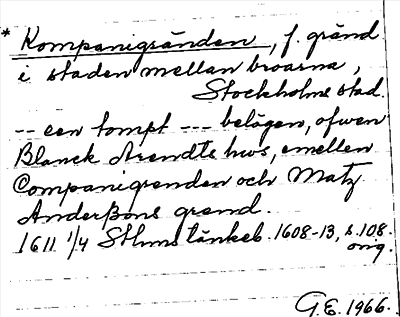 * Kompanigränden, f. gränd
i staden mellan broarna,
Stockholms stad.
-- een tompt --- belägen, ofwen
Blanck Arendts hws, emellen
Companigrenden och Matz
Anderßons grend.
1611 1/4 Sthms tänkeb. 1608-13, s. 108.
orig.
G.E. 1966.